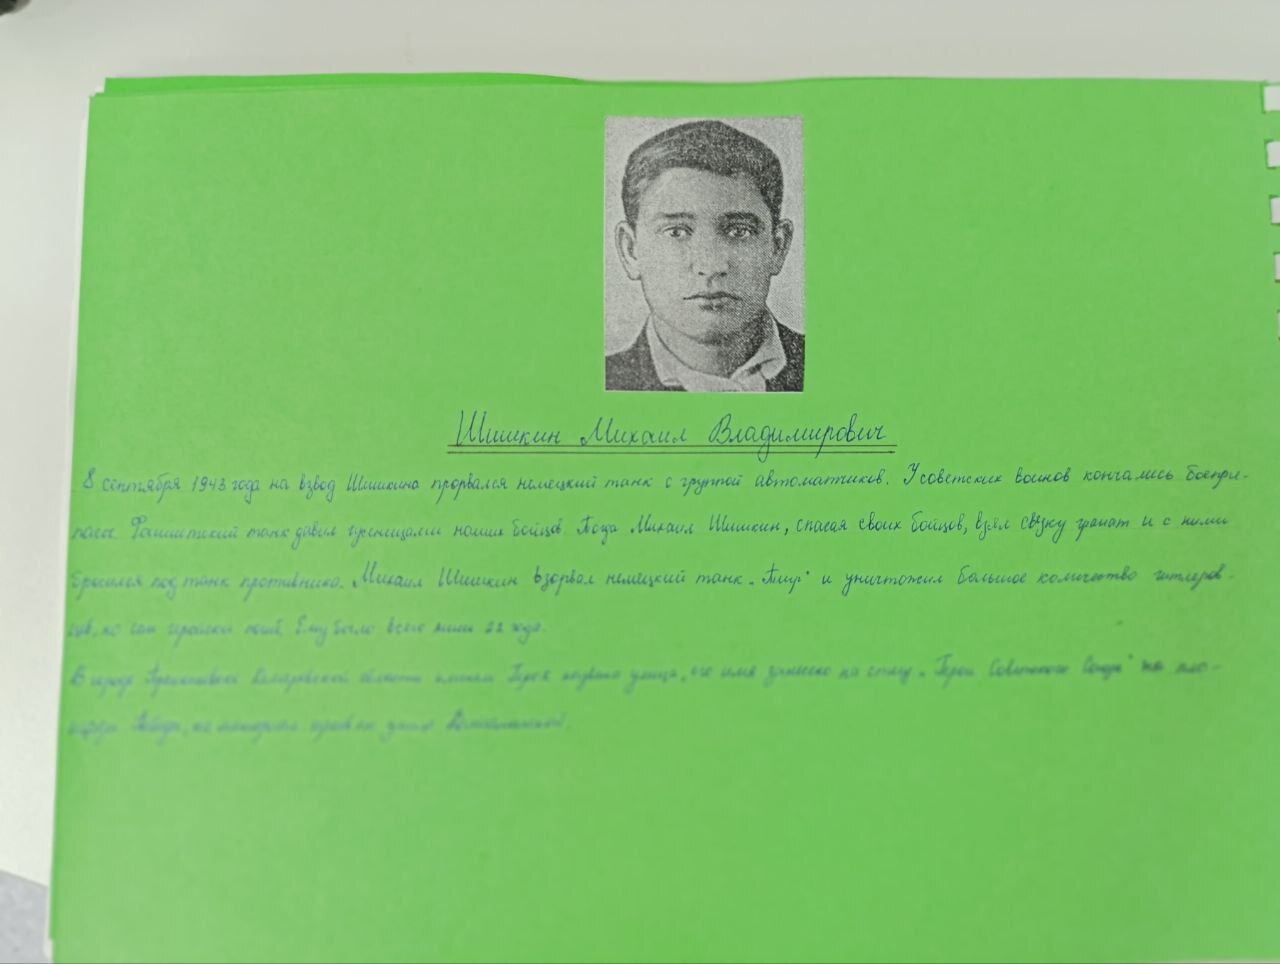 Шишкин Михаил Владимирович
8 сентября 1943 года на взвод Шишкина прорвался немецкий танк с группой автоматчиков. У советских воинов кончались боепри-
пасы. Фашистский танк давил гусеницами наших бойцов. Тогда Михаил Шишкин, спасая своих бойцов, взял связку гранат и с ними
бросился под танк противника. Михаил Шишкин взорвал немецкий танк „Тигр“ и уничтожил большое количество гитлеров-
цев, но сам геройски погиб. Ему было всего лишь 22 года.
В городе области именем Героя названа улица, его имя занесено на стелу „Герои Советского Союза“ на пло-